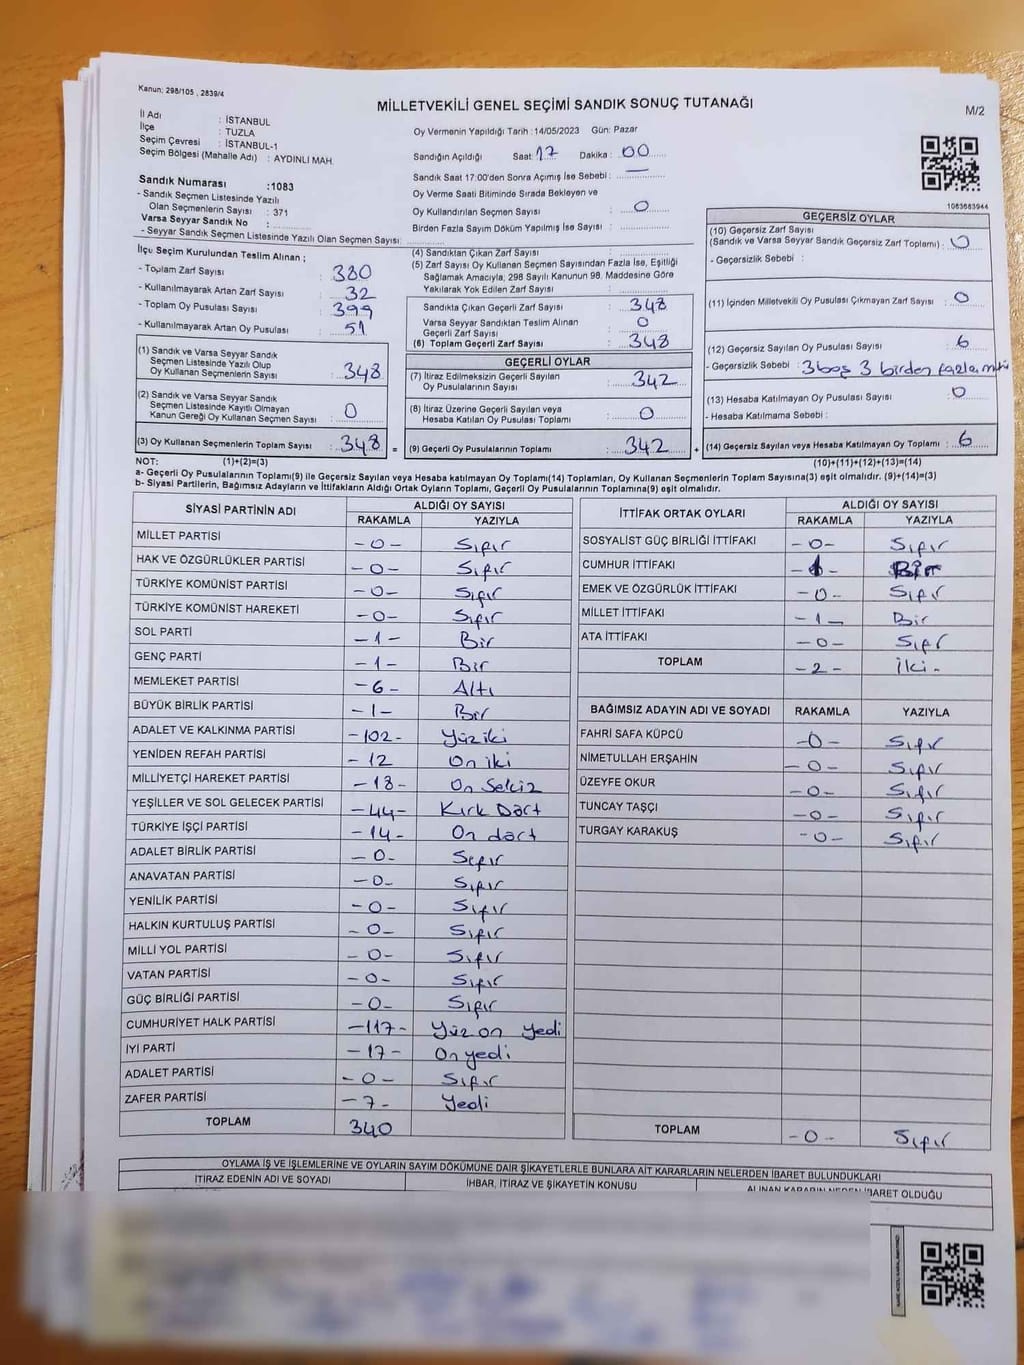 Kanun: 298/105 , 2839/4
MİLLETVEKİLİ GENEL SEÇİMİ SANDIK SONUÇ TUTANAĞI
M/2
İl Adı : İSTANBUL
İlçe : TUZLA
Seçim Çevresi : İSTANBUL-1
Seçim Bölgesi (Mahalle Adı) : AYDINLI MAH.
Oy Vermenin Yapıldığı Tarih :14/05/2023 Gün: Pazar
Sandığın Açıldığı Saat: 17 Dakika : 00
Sandık Saat 17:00'den Sonra Açımış İse Sebebi : —
Oy Verme Saati Bitiminde Sırada Bekleyen ve
Oy Kullandırılan Seçmen Sayısı : 0
Birden Fazla Sayım Döküm Yapılmış İse Sayısı :
Sandık Numarası :1083
- Sandık Seçmen Listesinde Yazılı
Olan Seçmenlerin Sayısı : 371
Varsa Seyyar Sandık No :
- Seyyar Sandık Seçmen Listesinde Yazılı Olan Seçmen Sayısı:
1083683944
İlçe Seçim Kurulundan Teslim Alınan ;
- Toplam Zarf Sayısı : 380
- Kullanılmayarak Artan Zarf Sayısı : 32
- Toplam Oy Pusulası Sayısı : 399
- Kullanılmayarak Artan Oy Pusulası : 51
(1) Sandık ve Varsa Seyyar Sandık
Seçmen Listesinde Yazılı Olup
Oy Kullanan Seçmenlerin Sayısı : 348
(2) Sandık ve Varsa Seyyar Sandık
Seçmen Listesinde Kayıtlı Olmayan
Kanun Gereği Oy Kullanan Seçmen Sayısı : 0
(3) Oy Kullanan Seçmenlerin Toplam Sayısı : 348 =
(4) Sandıktan Çıkan Zarf Sayısı :
(5) Zarf Sayısı Oy Kullanan Seçmen Sayısından Fazla İse, Eşitliği
Sağlamak Amacıyla; 298 Sayılı Kanunun 98. Maddesine Göre
Yakılarak Yok Edilen Zarf Sayısı :
Sandıkta Çıkan Geçerli Zarf Sayısı : 348
Varsa Seyyar Sandıktan Teslim Alınan
Geçerli Zarf Sayısı : 0
(6) Toplam Geçerli Zarf Sayısı : 348
GEÇERLİ OYLAR
(7) İtiraz Edilmeksizin Geçerli Sayılan
Oy Pusulalarının Sayısı : 342
(8) İtiraz Üzerine Geçerli Sayılan veya
Hesaba Katılan Oy Pusulası Toplamı : 0
(9) Geçerli Oy Pusulalarının Toplamı : 342 +
GEÇERSİZ OYLAR
(10) Geçersiz Zarf Sayısı
(Sandık ve Varsa Seyyar Sandık Geçersiz Zarf Toplamı) : 0
- Geçersizlik Sebebi :
(11) İçinden Milletvekili Oy Pusulası Çıkmayan Zarf Sayısı : 0
(12) Geçersiz Sayılan Oy Pusulası Sayısı : 6
- Geçersizlik Sebebi : 3 boş 3 birden fazla
(13) Hesaba Katılmayan Oy Pusulası Sayısı : 0
- Hesaba Katılmama Sebebi :
(14) Geçersiz Sayılan veya Hesaba Katılmayan Oy Toplamı : 6
NOT: (1)+(2)=(3) (10)+(11)+(12)+(13)=(14)
a- Geçerli Oy Pusulalarının Toplamı(9) ile Geçersiz Sayılan veya Hesaba katılmayan Oy Toplamı(14) Toplamları, Oy Kullanan Seçmenlerin Toplam Sayısına(3) eşit olmalıdır. (9)+(14)=(3)
b- Siyasi Partilerin, Bağımsız Adayların ve İttifakların Aldığı Ortak Oyların Toplamı, Geçerli Oy Pusulalarının Toplamına(9) eşit olmalıdır.
SİYASİ PARTİNİN ADI ALDIĞI OY SAYISI
RAKAMLA YAZIYLA
MİLLET PARTİSİ -0- Sıfır
HAK VE ÖZGÜRLÜKLER PARTİSİ -0- Sıfır
TÜRKİYE KOMÜNİST PARTİSİ -0- Sıfır
TÜRKİYE KOMÜNİST HAREKETİ -0- Sıfır
SOL PARTİ -1- Bir
GENÇ PARTİ -1- Bir
MEMLEKET PARTİSİ -6- Altı
BÜYÜK BİRLİK PARTİSİ -1- Bir
ADALET VE KALKINMA PARTİSİ -102- Yüz iki
YENİDEN REFAH PARTİSİ - 12 On iki
MİLLİYETÇİ HAREKET PARTİSİ -18- On Sekiz
YEŞİLLER VE SOL GELECEK PARTİSİ -44- Kırk Dört
TÜRKİYE İŞÇİ PARTİSİ -14- On dört
ADALET BİRLİK PARTİSİ -0- Sıfır
ANAVATAN PARTİSİ -0- Sıfır
YENİLİK PARTİSİ -0- Sıfır
HALKIN KURTULUŞ PARTİSİ -0- Sıfır
MİLLİ YOL PARTİSİ -0- Sıfır
VATAN PARTİSİ -0- Sıfır
GÜÇ BİRLİĞİ PARTİSİ -0- Sıfır
CUMHURİYET HALK PARTİSİ -117- Yüz on yedi
İYİ PARTİ -17- On yedi
ADALET PARTİSİ -0- Sıfır
ZAFER PARTİSİ -7- Yedi
TOPLAM 340
İTTİFAK ORTAK OYLARI ALDIĞI OY SAYISI
RAKAMLA YAZIYLA
SOSYALİST GÜÇ BİRLİĞİ İTTİFAKI -0- Sıfır
CUMHUR İTTİFAKI -1- Bir
EMEK VE ÖZGÜRLÜK İTTİFAKI -0- Sıfır
MİLLET İTTİFAKI -1- Bir
ATA İTTİFAKI -0- Sıfır
TOPLAM -2- İki-
BAĞIMSIZ ADAYIN ADI VE SOYADI RAKAMLA YAZIYLA
FAHRİ SAFA KÜPCÜ -0- Sıfır
NİMETULLAH ERŞAHİN -0- Sıfır
ÜZEYFE OKUR -0- Sıfır
TUNCAY TAŞÇI -0- Sıfır
TURGAY KARAKUŞ -0- Sıfır
TOPLAM -0- Sıfır
OYLAMA İŞ VE İŞLEMLERİNE VE OYLARIN SAYIM DÖKÜMÜNE DAİR ŞİKAYETLERLE BUNLARA AİT KARARLARIN NELERDEN İBARET BULUNDUKLARI
İTİRAZ EDENİN ADI VE SOYADI İHBAR, İTİRAZ VE ŞİKAYETİN KONUSU ALINAN KARARIN NEDEN İBARET OLDUĞU